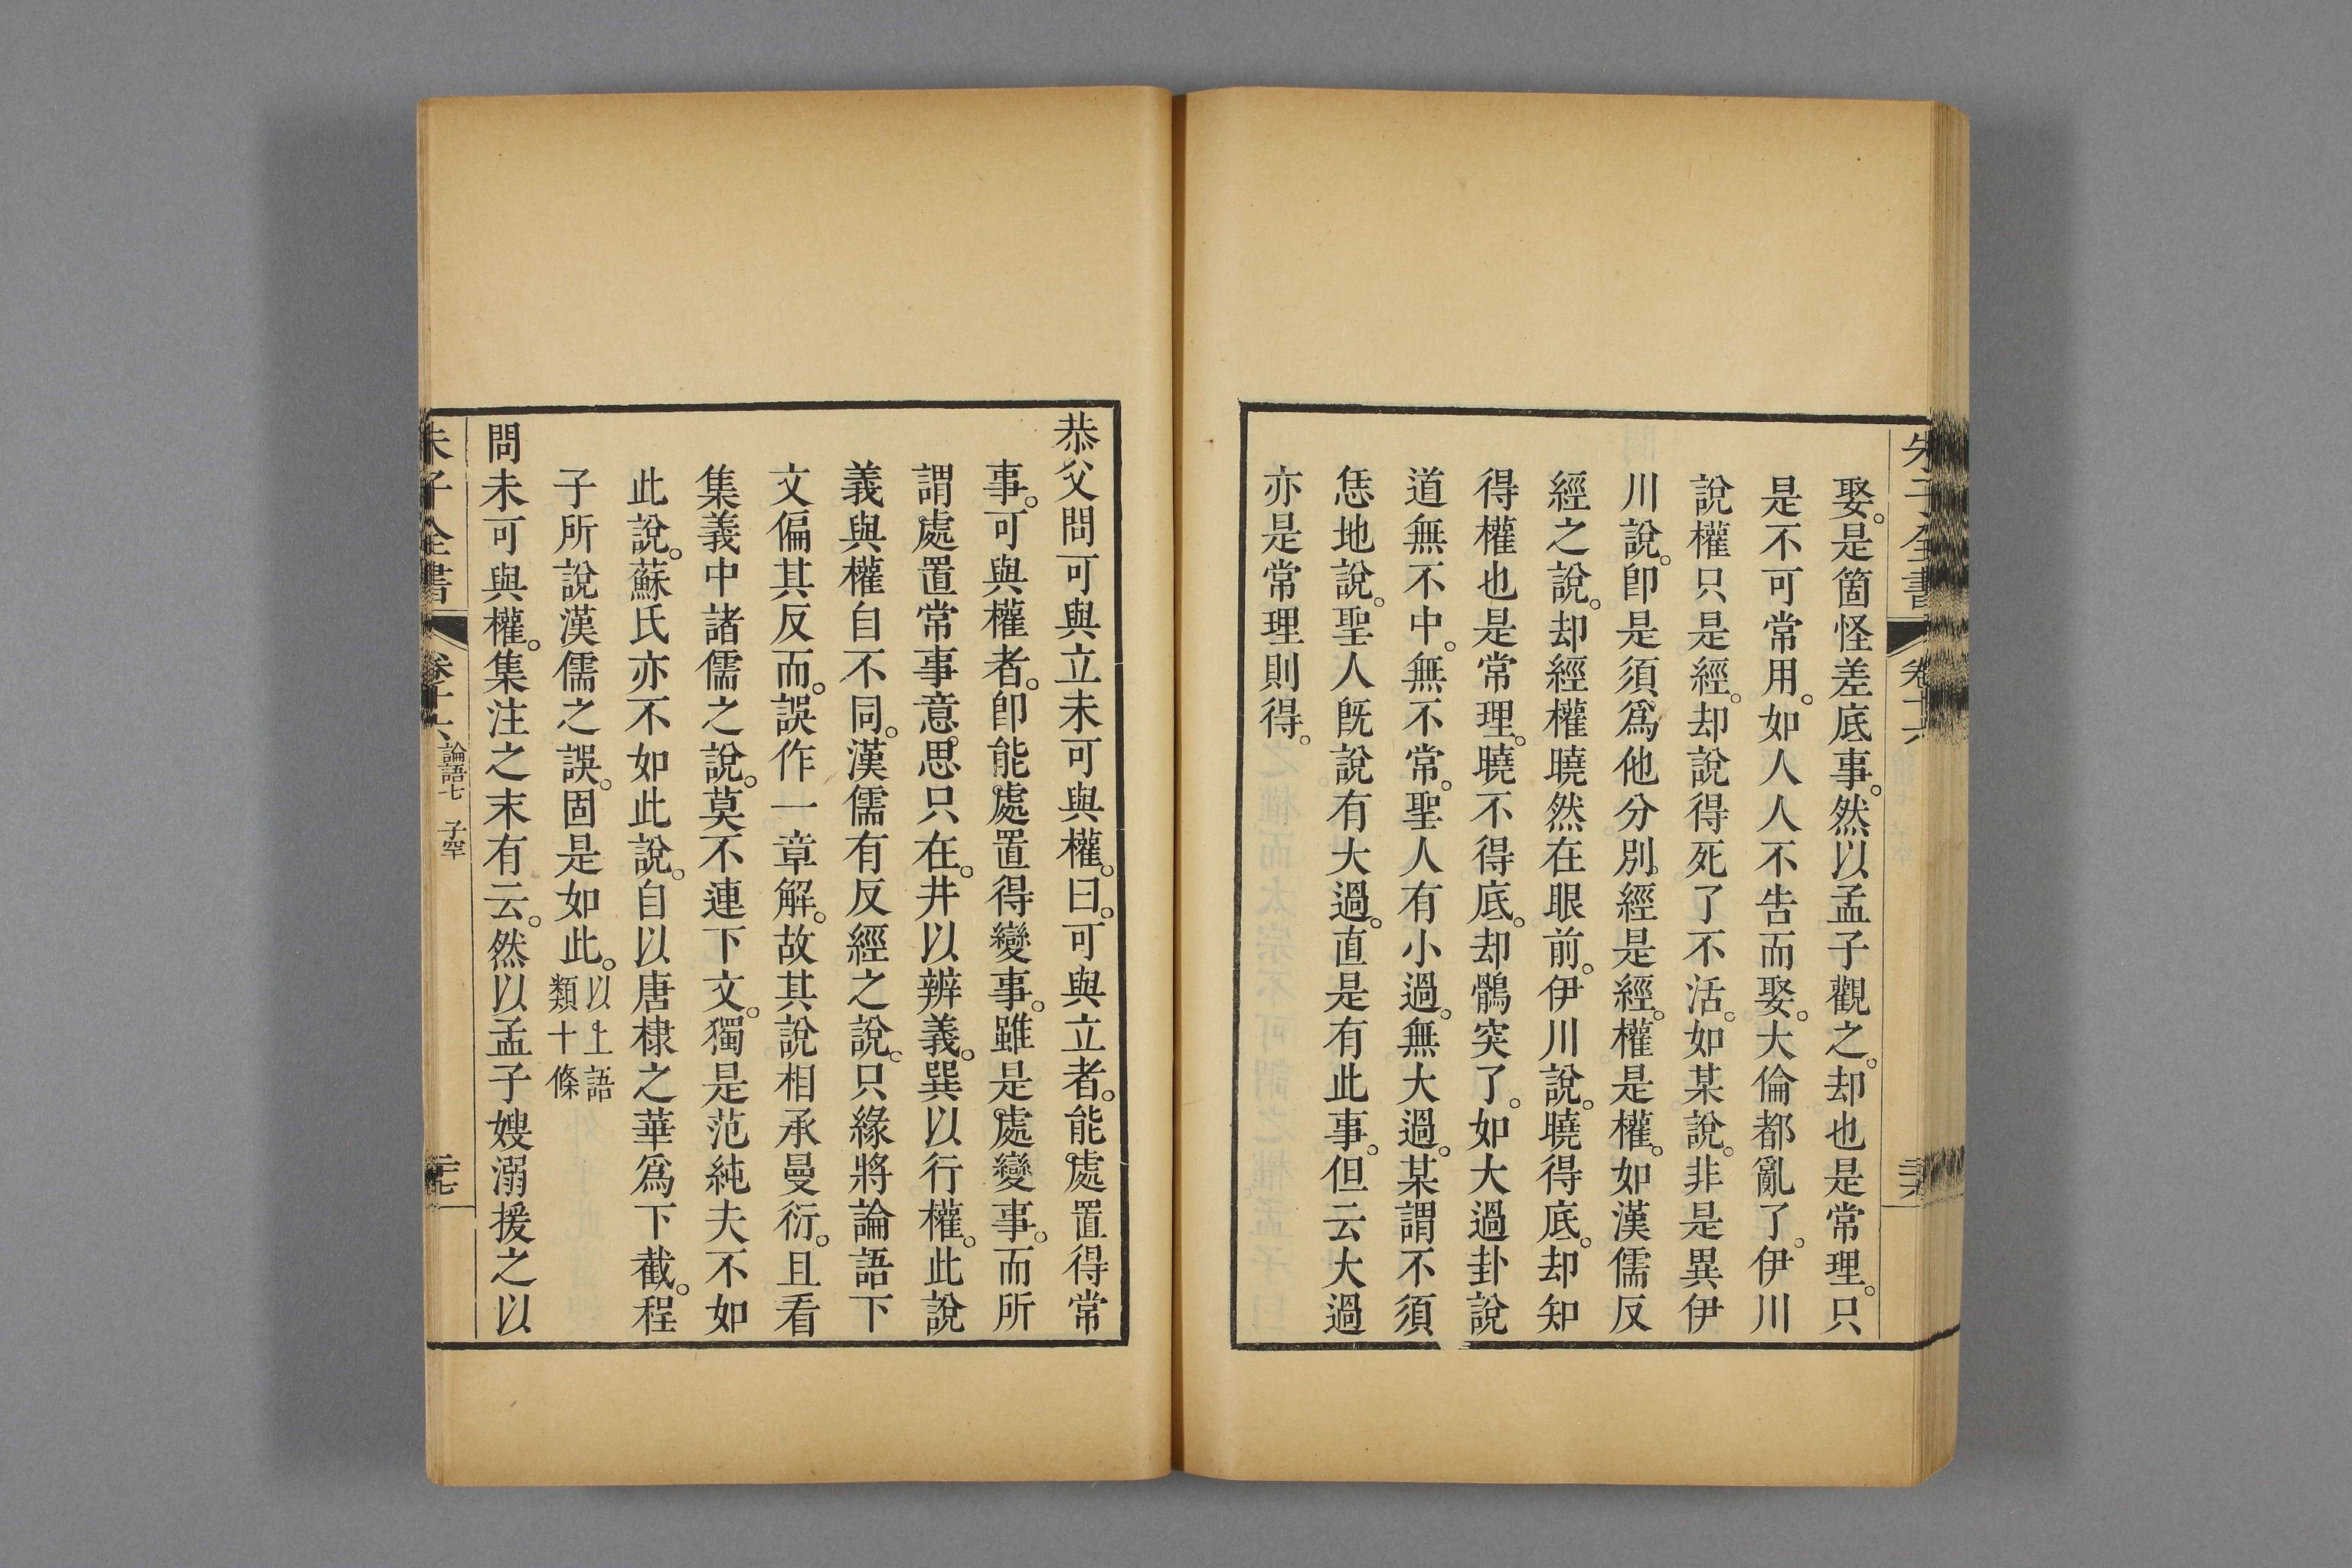 朱子全書 卷十六
娶。是箇怪差底事。然以孟子觀之。却也是常理。只
是不可常用。如人人不告而娶。大倫都亂了。伊川
說權只是經。却說得死了不活。如某說。非是異伊
川說。卽是須爲他分別。經是經。權是權。如漢儒反
經之說。却經權曉然在眼前。伊川說。曉得底。却知
得權也是常理。曉不得底。却鶻突了。如大過卦說
道無不中。無不常。聖人有小過。無大過。某謂不須
恁地說。聖人旣說有大過。直是有此事。但云大過
亦是常理則得。
恭父問可與立未可與權。曰。可與立者。能處置得常
事。可與權者。卽能處置得變事。雖是處變事。而所
謂處置常事意思只在。井以辨義。巽以行權。此說
義與權自不同。漢儒有反經之說。只緣將論語下
文偏其反而。誤作一章解。故其說相承曼衍。且看
集義中諸儒之說。莫不連下文。獨是范純夫不如
此說。蘇氏亦不如此說。自以唐棣之華爲下截。程
子所說漢儒之誤。固是如此。以上語類十條
問未可與權。集注之末有云。然以孟子嫂溺援之以
朱子全書 卷十六 論語七 子罕 三七